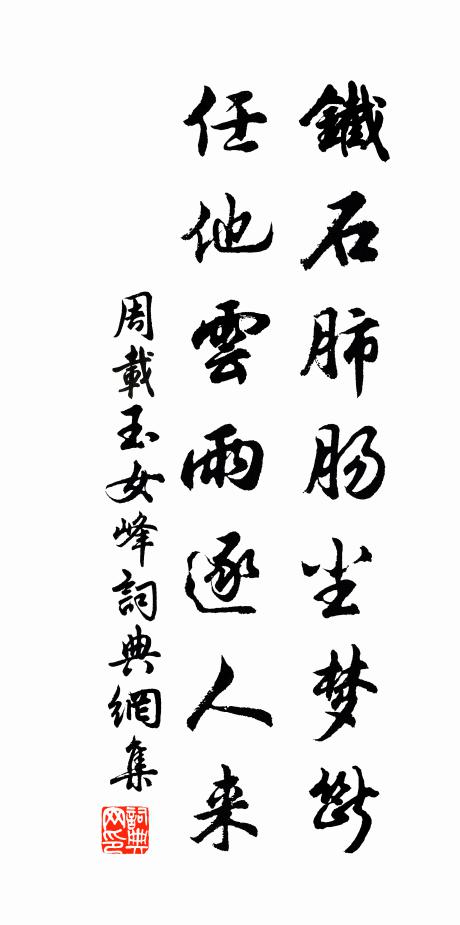 鐵石肺肠尘梦斷
任他雲雨逐人来
周載玉女峰詞典網集
詞典网印